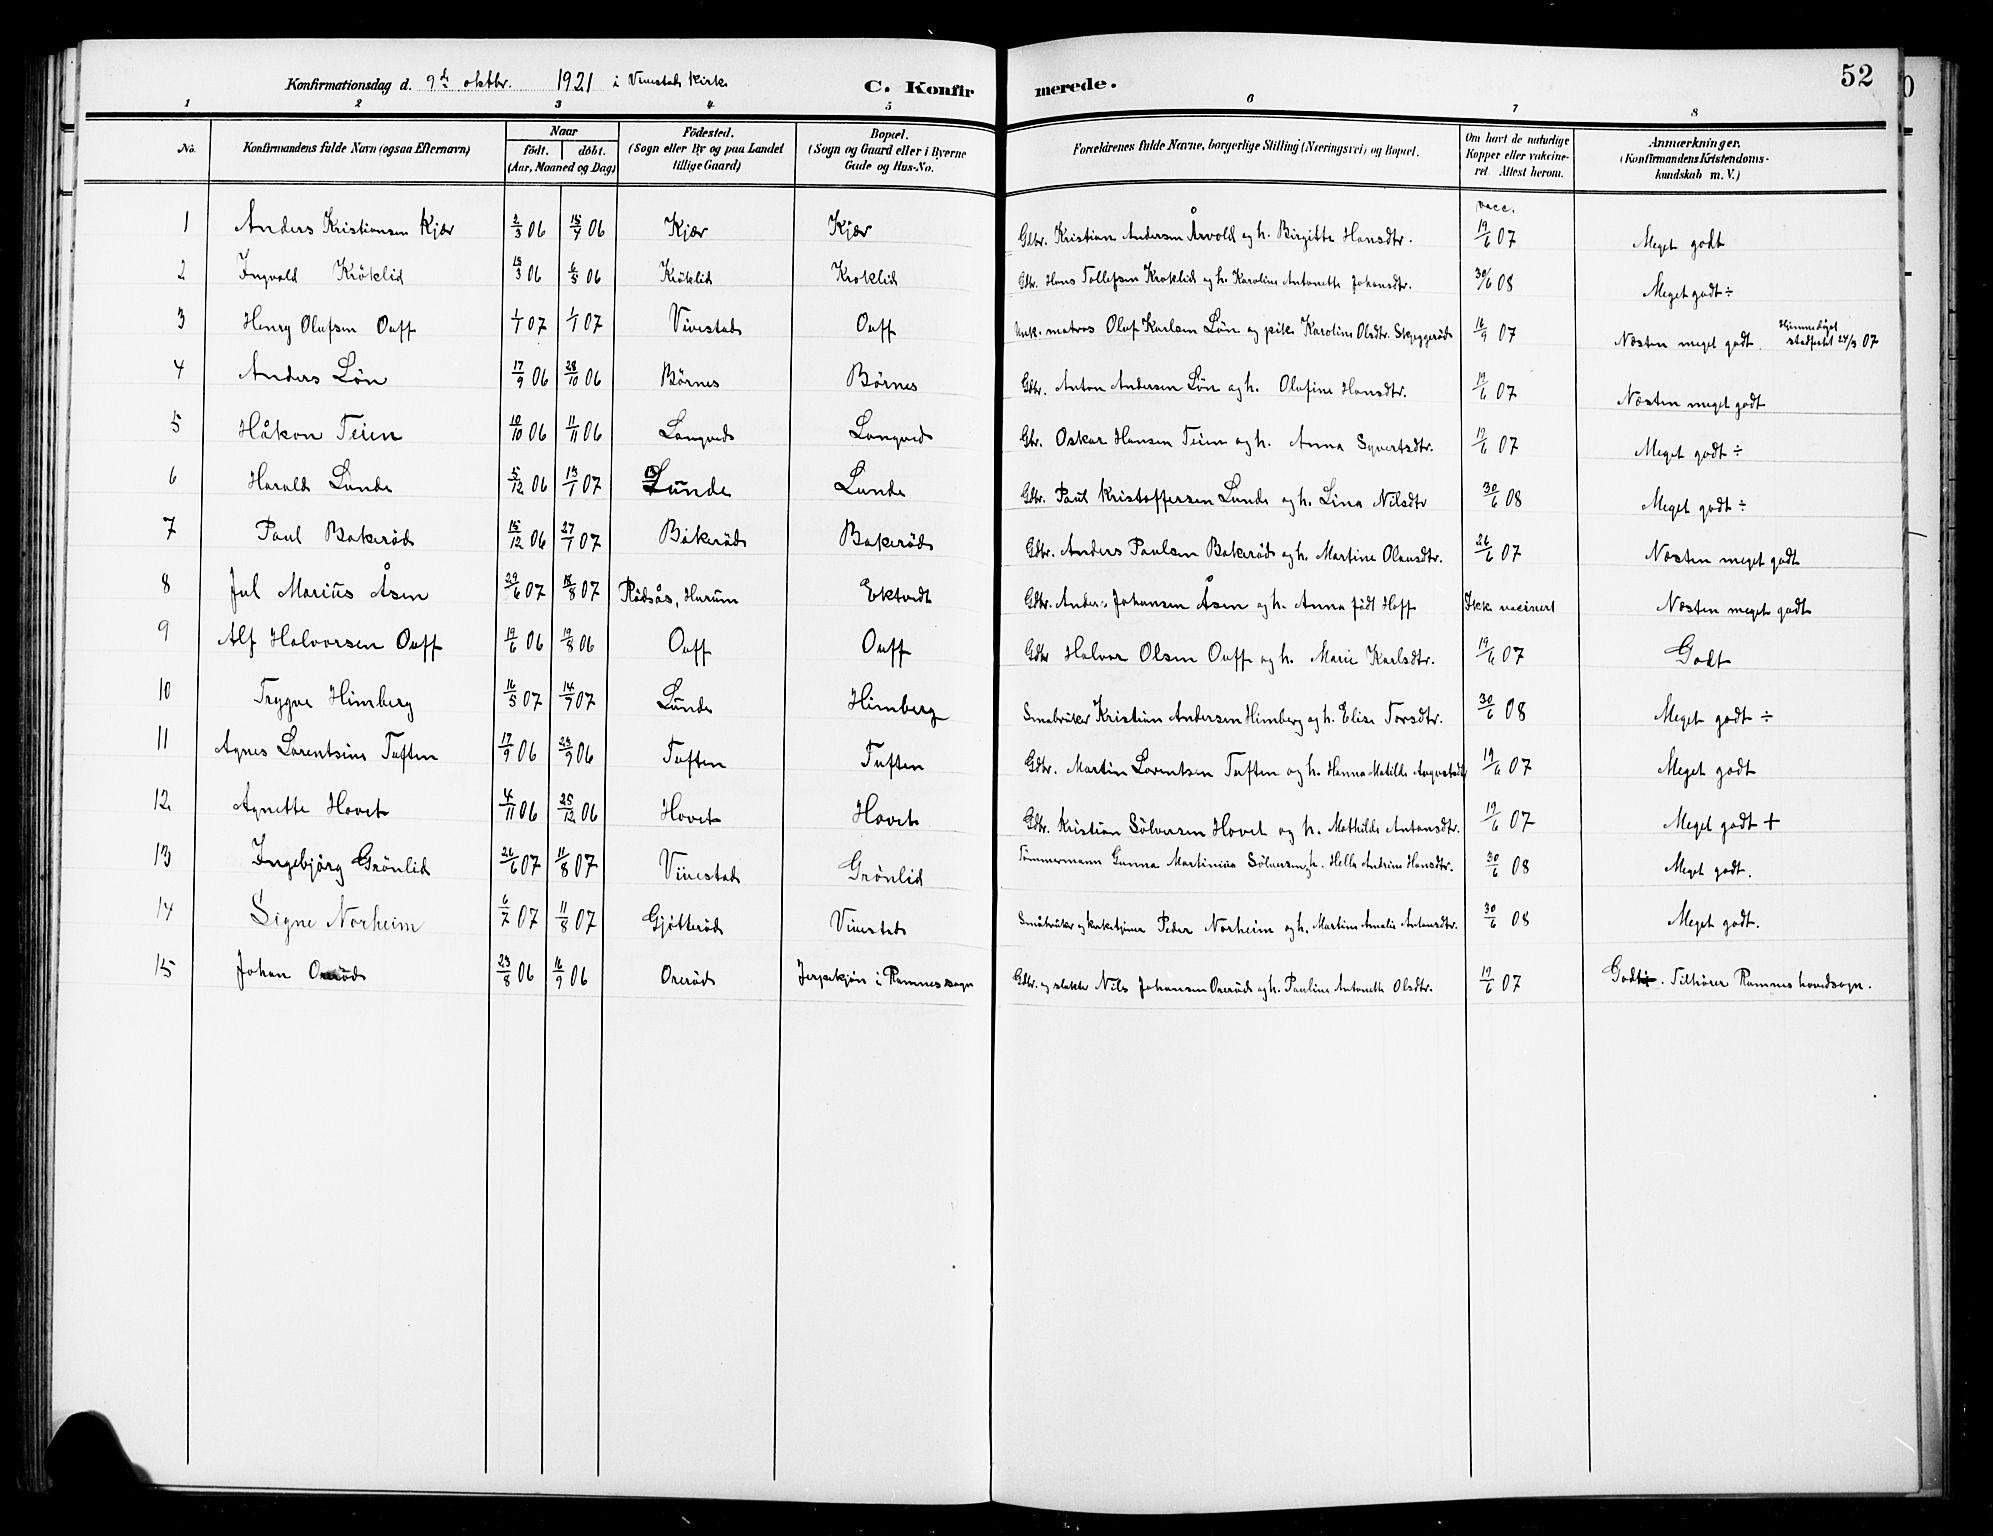 Konfirmationsdag d. 9de oktbr. 1921 i Vivestad kirke C. Konfirmerede. 52
1 2 3 4 5 6 7 8
No. Konfirmandens fulde Navn (ogsaa Efternavn) Naar födt. döbt. (Aar, Maaned og Dag) Födested. (Sogn eller By og paa Landet tillige Gaard) Bopæl. (Sogn og Gaard eller i Byerne Gade og Hus-No. Forældrenes fulde Navne, borgerlige Stilling (Næringsvei) og Bopæl. Om havt de naturlige Kopper eller vakcineret. Attest herom. Anmærkninger, (Konfirmandens Kristendomskundskab m. V.)
vacc.
1 Anders Kristiansen Kjær 2/3 06 15/7 06 Kjær Kjær Gbr. Kristian Andersen Årvold og h. Birgitte Hansdtr. 19/6 07 Meget godt
2 Ingvald Kröklid 13/3 06 6/5 06 Kröklid Kroklid Gbr. Hans Tollefsen Kroklid og h. Karoline Antonette Johansdtr. 30/6 08 Meget godt ÷
3 Henry Olafsen Ouff 1/1 07 1/1 07 Vivestad Ouff Unk. matros Olaf Karlsen Lön og pike Karoline Olsdtr. Skjeggeröd 16/9 07 Næsten meget godt. Hjemmedöpt stadfestet 24/3 07
4 Anders Lön 17/9 06 28/10 06 Börnes Börnes Gbr. Anton Andersen Lön og h. Olafine Hansdtr. 19/6 07 Næsten meget godt
5 Håkon Teien 10/10 06 11/11 06 Langved Langved Gbr. Oskar Hansen Teien og h. Anna Syvertsdtr. 19/6 07 Meget godt ÷
6 Harald Lunde 5/12 06 13/1 07 Lunde Lunde Gbr. Paul Kristoffersen Lunde og h. Lina Nilsdtr 30/6 08 Meget godt ÷
7 Paul Bakeröd 15/12 06 27/1 07 Bakeröd Bakeröd Gbr. Anders Paulsen Bakeröd og h. Martine Olausdtr. 26/6 07 Næsten meget godt
8 Jul Marius Åsen 29/6 07 18/8 07 Rödsås, Hurum Ektvedt Gbr. Anders Johansen Åsen og h. Anna født Hoff Ikke vacinert Næsten meget godt
9 Alf Halvorsen Ouff 19/6 06 19/8 06 Ouff Ouff Gbr Halvor Olsen Ouff og h. Marie Karlsdtr. 19/6 07 Godt
10 Trygve Himberg 16/5 07 14/7 07 Lunde Himberg Småbruker Kristian Andersen Himberg og h. Elise Torsdtr. 30/6 08 Meget godt ÷
11 Agnes Lorentsine Tuften 17/9 06 23/9 06 Tuften Tuften Gbr. Martin Lorentsen Tuften og h. Hanna Matilde 19/6 07 Meget godt
12 Agnette Hovet 4/11 06 25/12 06 Hovet Hovet Gbr. Kristian Sölversen Hovet og h. Mathilde Antonsdtr. 19/6 07 Meget godt +
13 Ingebjörg Grönlid 26/6 07 11/8 07 Vivestad Grönlid Tömmermann Gunna Martinius Sölversen, h. Hella Andrine Hansdtr. 30/6 08 Meget godt.
14 Signe Norheim 6/7 07 11/8 07 Gjötteröd Vivestad Småbruker og kirketjener Peder Norheim og h. Martine Amalie Antonsdtr. 30/6 08 Meget godt.
15 Johan Oreröd 23/8 06 16/9 06 Oreröd Jerpekjøn i Ramnes sogn Gbr. og slakter Nils Johansen Oreröd og h. Pauline Antonette Olsdtr. 19/6 07 Godt. Tilhører Ramnes hovedsogn.